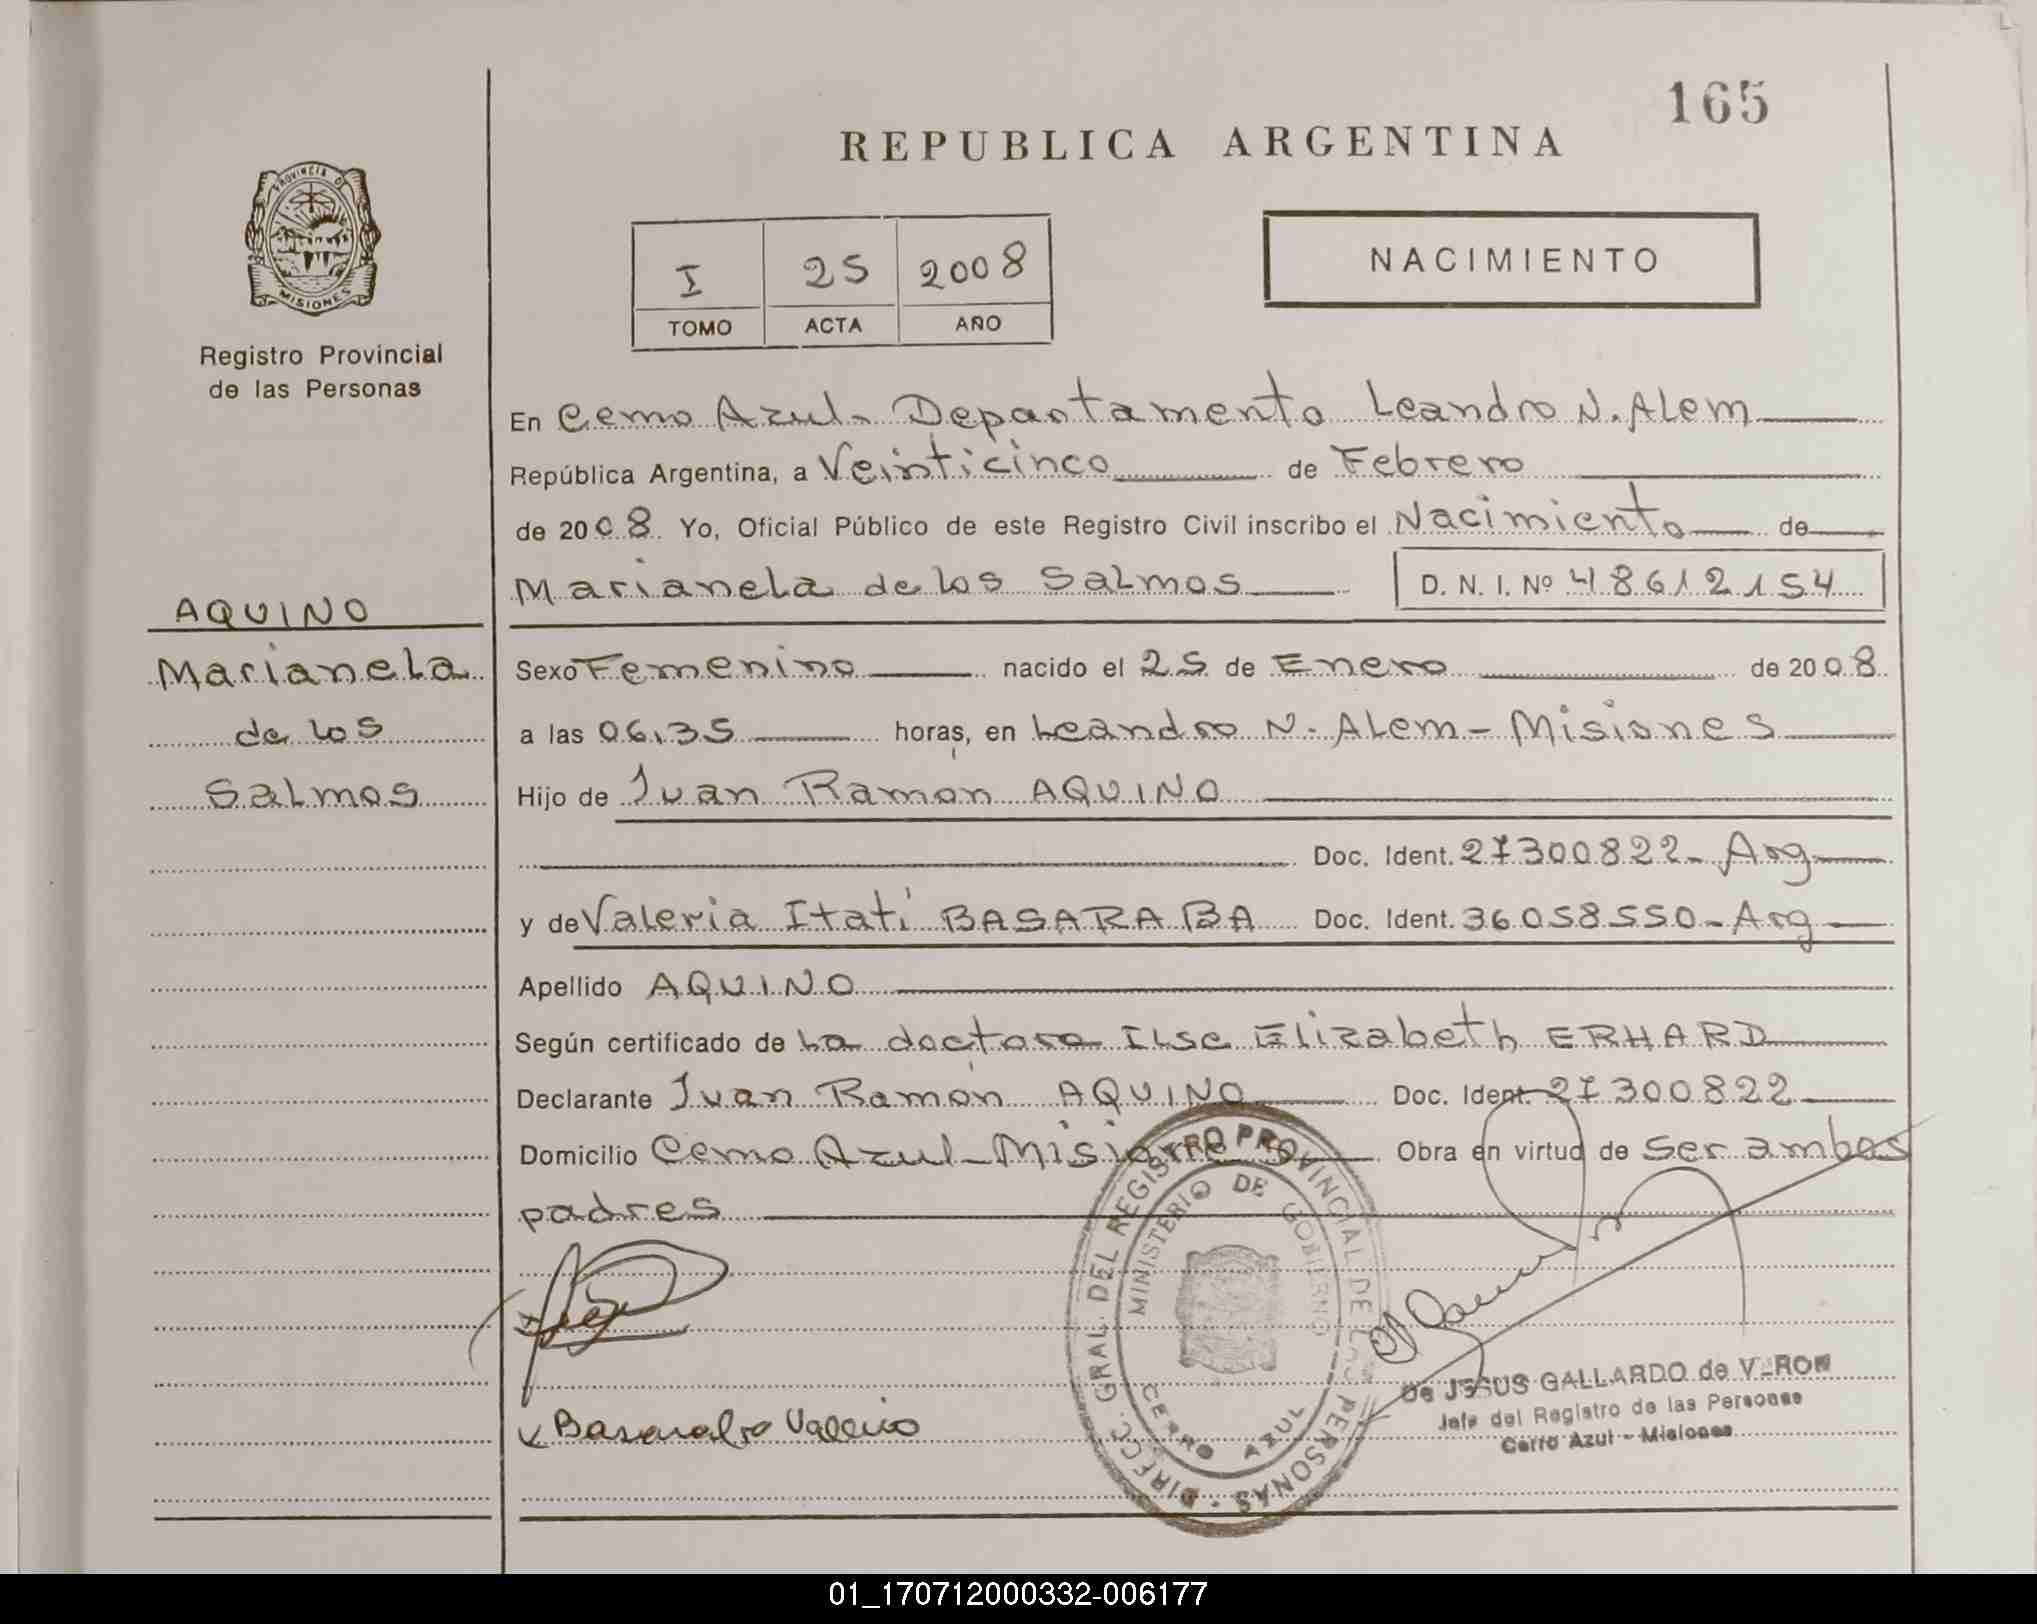 165
REPUBLICA ARGENTINA
PROVINCIA DE
MISIONES
Registro Provincial
de las Personas
I 25 2008
TOMO ACTA AÑO
NACIMIENTO
En Cerro Azul - Departamento Leandro N. Alem
República Argentina, a Veinticinco de Febrero
de 2008. Yo, Oficial Público de este Registro Civil inscribo el Nacimiento de
Marianela de los Salmos D. N. I. Nº 48612154
AQUINO
Marianela
de los
Salmos
Sexo Femenino nacido el 25 de Enero de 2008
a las 06,35 horas, en Leandro N. Alem - Misiones
Hijo de Juan Ramón AQUINO
Doc. Ident. 27300822 - Arg
y de Valeria Itatí BASARABA Doc. Ident. 36058550 - Arg
Apellido AQUINO
Según certificado de La doctora Ilse Elizabeth ERHARD
Declarante Juan Ramón AQUINO Doc. Ident. 27300822
Domicilio Cerro Azul - Misiones Obra en virtud de ser ambos
padres
DIRECC. GRAL. DEL REGISTRO PROVINCIAL DE LAS PERSONAS -
MINISTERIO DE GOBIERNO
CERRO AZUL
x Basaraba Valeria
De JESUS GALLARDO de VERON
Jefe del Registro de las Personas
Cerro Azul - Misiones
01_170712000332-006177